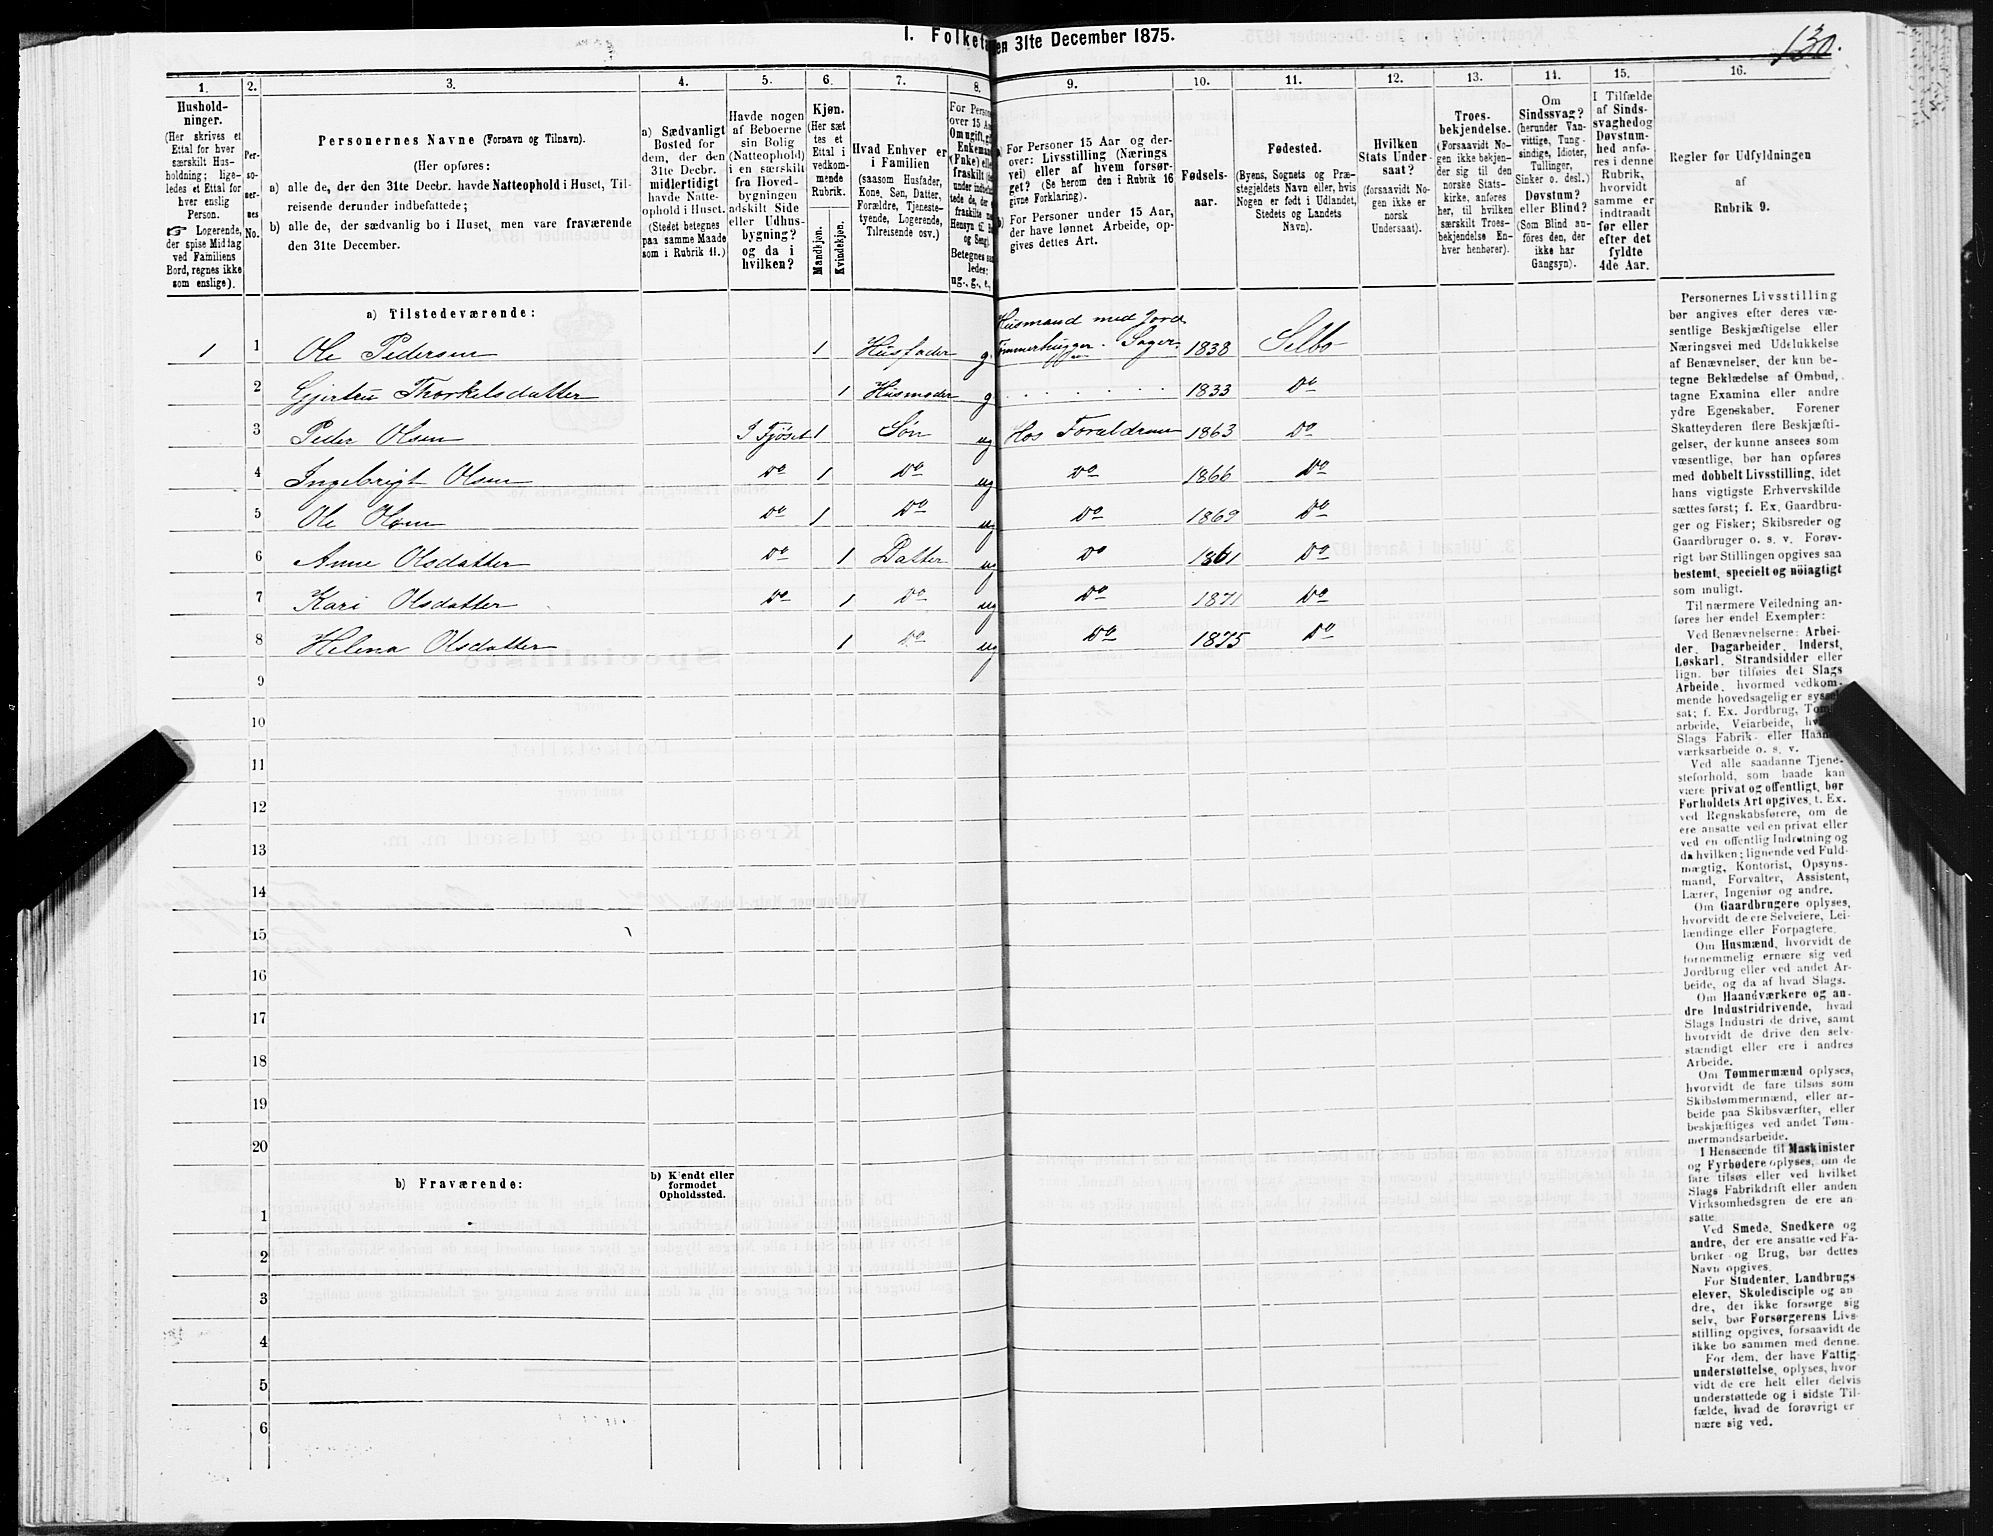 130.
I. Folketa en 31te December 1875.
1. 2. 3. 4. 5. 6. 7. 8. 9. 10. 11. 12. 13. 14. 15. 16.
Hushold-
ninger.
(Her skrives et
Ettal for hver
særskilt Hus-
holdning; lige-
ledes et Ettal for
hver enslig
Person.
☞ Logerende,
der spise Middag
ved Familiens
Bord, regnes ikke
som enslige).
Per-
so-
ner-
nes
No.
Personernes Navne (Fornavn og Tilnavn).
(Her opføres:
a) alle de, der den 31te Decbr. havde Natteophold i Huset, Til-
reisende derunder indbefattede;
b) alle de, der sædvanlig bo i Huset, men vare fraværende
den 31te December.
a) Sædvanligt
Bosted for
dem, der den
31te Decbr.
midlertidigt
havde Natte-
ophold i Huset.
(Stedet betegnes
paa samme Maade
som i Rubrik 11.)
Havde nogen
af Beboerne
sin Bolig
(Natteophold)
i en særskilt
fra Hoved-
bygningen
adskilt Side
eller Udhus-
bygning?
og da i
hvilken?
Kjøn.
(Her sæt
tes et
Ettal i
vedkom-
mende
Rubrik.
Mandkjøn.
Kvindekjøn.
Hvad Enhver er
i Familien
(saasom Husfader,
Kone, Søn, Datter,
Forældre, Tjeneste-
tyende, Logerende,
Tilreisende osv.)
For Person
over 15 Aa
Om ugift, gi
Enkeman
(Fnke) elle
fraskilt (d
under indbe
tede de, der
fraskilte m
Hensyn til B
og Seng).
Betegnes saa
ledes:
ug., g., e.,
a) For Personer 15 Aar og der-
over: Livsstilling (Nærings
vei) eller af hvem forsør-
get? (Se herom den i Rubrik 16
givne Forklaring).
b) For Personer under 15 Aar,
der have lønnet Arbeide, op-
gives dettes Art.
Fødsels-
aar.
Fødested.
(Byens, Sognets og Præ-
stegjeldets Navn eller, hvis
Nogen er født i Udlandet,
Stedets og Landets
Navn).
Hvilken
Stats Under-
saat?
(forsaavidt No-
gen ikke er
norsk
Undersaat).
Troes-
bekjendelse.
(Forsaavidt No-
gen ikke bekjen-
der sig til den
norske Stats-
kirke, anføres
her, til hvilken
særskilt Troes-
bekjendelse En-
hver henhører).
Om
Sindssvag?
(herunder Van-
vittige, Tung-
sindige, Idioter,
Tullinger,
Sinker o. desl.)
Døvstum?
eller Blind?
(Som Blind an-
føres den, der
ikke har
Gangsyn).
I Tilfælde
af Sinds-
svaghed og
Døvstum-
hed anfø-
res i denne
Rubrik,
hvorvidt
samme er
indtraadt
før eller
efter det
fyldte
4de Aar.
Regler for Udfyldningen
af
Rubrik 9.
a) Tilstedeværende:
Husmand med Jord
1 1 Ole Pedersen 1 Husfader g. Tømmerhugger 1838 Selbo
2 Gjertru Thorkelsdatter 1 Husmoder g 1833 Do
3 Peder Olsen I Fjøset 1 Søn ug Hos Forældrene 1863 Do
4 Ingebrigt Olsen Do 1 Do ug Do 1866 Do
5 Ole Olsen Do 1 Do ug Do 1869 Do
6 Anne Olsdatter Do 1 Datter ug Do 1861 Do
7 Kari Olsdatter Do 1 Do ug Do 1871 Do
8 Helena Olsdatter 1 Do ug Do 1875 Do
9
10
11
12
13
14
15
16
17
18
19
20
b) Fraværende: b) Kjendt eller
formodet
Opholdssted.
1
2
3
4
5
6
Personernes Livsstilling
bør angives efter deres væ-
sentlige Beskjæftigelse eller
Næringsvei med Udelukkelse
af Benævnelser, der kun be-
tegne Beklædelse af Ombud,
tagne Examina eller andre
ydre Egenskaber. Forener
Skatteyderen flere Beskjæfti-
gelser, der kunne ansees som
væsentlige, bør han opføres
med dobbelt Livsstilling, idet
hans vigtigste Erhvervskilde
sættes først; f. Ex. Gaardbru-
ger og Fisker; Skibsreder og
Gaardbruger o. s. v. Forøv-
rigt bør Stillingen opgives saa
bestemt, specielt og nöiagtigt
som muligt.
Til nærmere Veiledning an-
føres her endel Exempler:
Ved Benævnelserne: Arbei-
der, Dagarbeider, Inderst,
Løskarl, Strandsidder eller
lign. bør tilføies det Slags
Arbeide, hvormed vedkom-
mende hovedsagelig er syssel
sat; f. Ex. Jordbrug, Tom
arbeide, Veiarbeide, hv
Slags Fabrik- eller Haan
værksarbeide o. s. v.
Ved alle saadanne Tjene-
steforhold, som baade kan
være privat og offentligt, bør
Forholdets Art opgives, t. Ex.
ved Regnskabsførere, om de
ere ansatte ved en privat eller
ved en offentlig Indretning og
da hvilken; lignende ved Fuld-
mægtig, Kontorist, Opsyns-
mand, Forvalter, Assistent,
Lærer, Ingeniør og andre.
Om Gaardbrugere oplyses,
hvorvidt de ere Selveiere, Lei-
lændinge eller Forpagtere.
Om Husmænd, hvorvidt de
fornemmelig ernære sig ved
Jordbrug eller ved andet Ar-
beide, og da af hvad Slags.
Om Haandværkere og an-
dre Industridrivende, hvad
Slags Industri de drive, samt
hvorvidt de drive den selv-
stændigt eller ere i andres
Arbeide.
Om Tømmermænd oplyses,
hvorvidt de fare tilsøs som
Skibstømmermænd, eller ar-
beide paa Skibsværfter, eller
beskjæftiges ved andet Tøm-
mermandsarbeide.
I Henseende til Maskinister
og Fyrbødere oplyses, om de
fare tilsøs eller ved hvilket
Slags Fabrikdrift eller anden
Virksomhedsgren de ere an-
satte
Ved Smede, Snedkere og
andre, der ere ansatte ved Fa-
briker og Brug, bør dettes
Navn opgives.
For Studenter, Landbrugs-
elever, Skoledisciple og an
dre, der ikke forsørge sig
selv, bør Forsørgerens Livs-
stilling opgives, forsaavidt de
ikke bo sammen med denne.
For dem, der have Fattig-
understøttelse, oplyses, hvor
vidt de ere helt eller delvis
understøttede og i sidste Til-
fælde, hvad de forøvrigt er
nære sig ved.